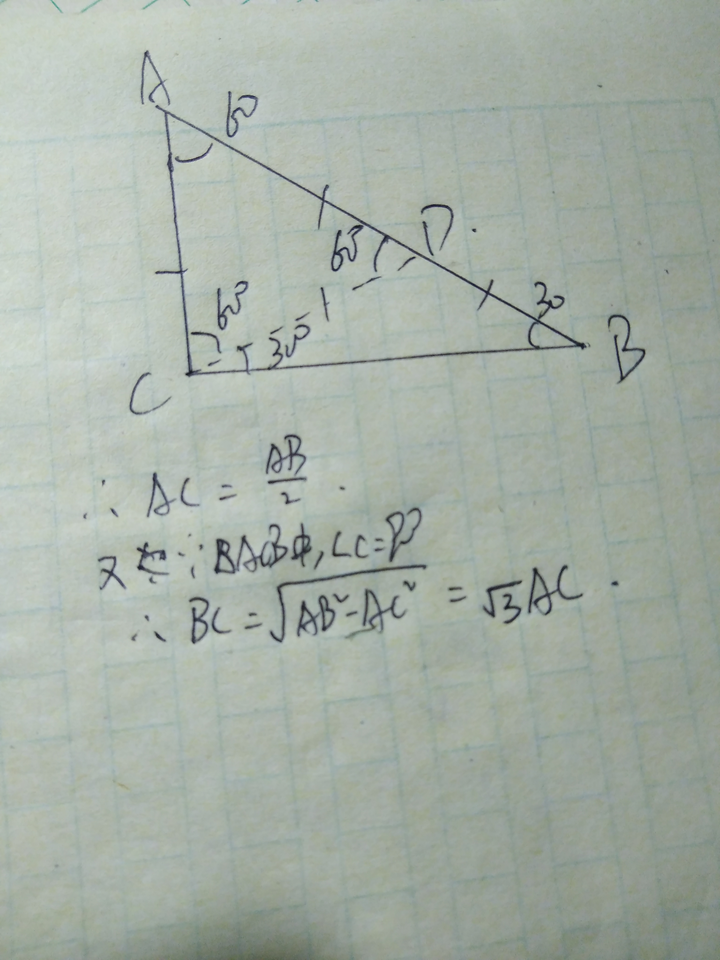 A
60°
D.
60°
30
60°
30°
C
B
∴ AC = AB/2 .
又 ∵ RtACB中, ∠C=90°
∴ BC = √(AB²-AC²) = √3AC .